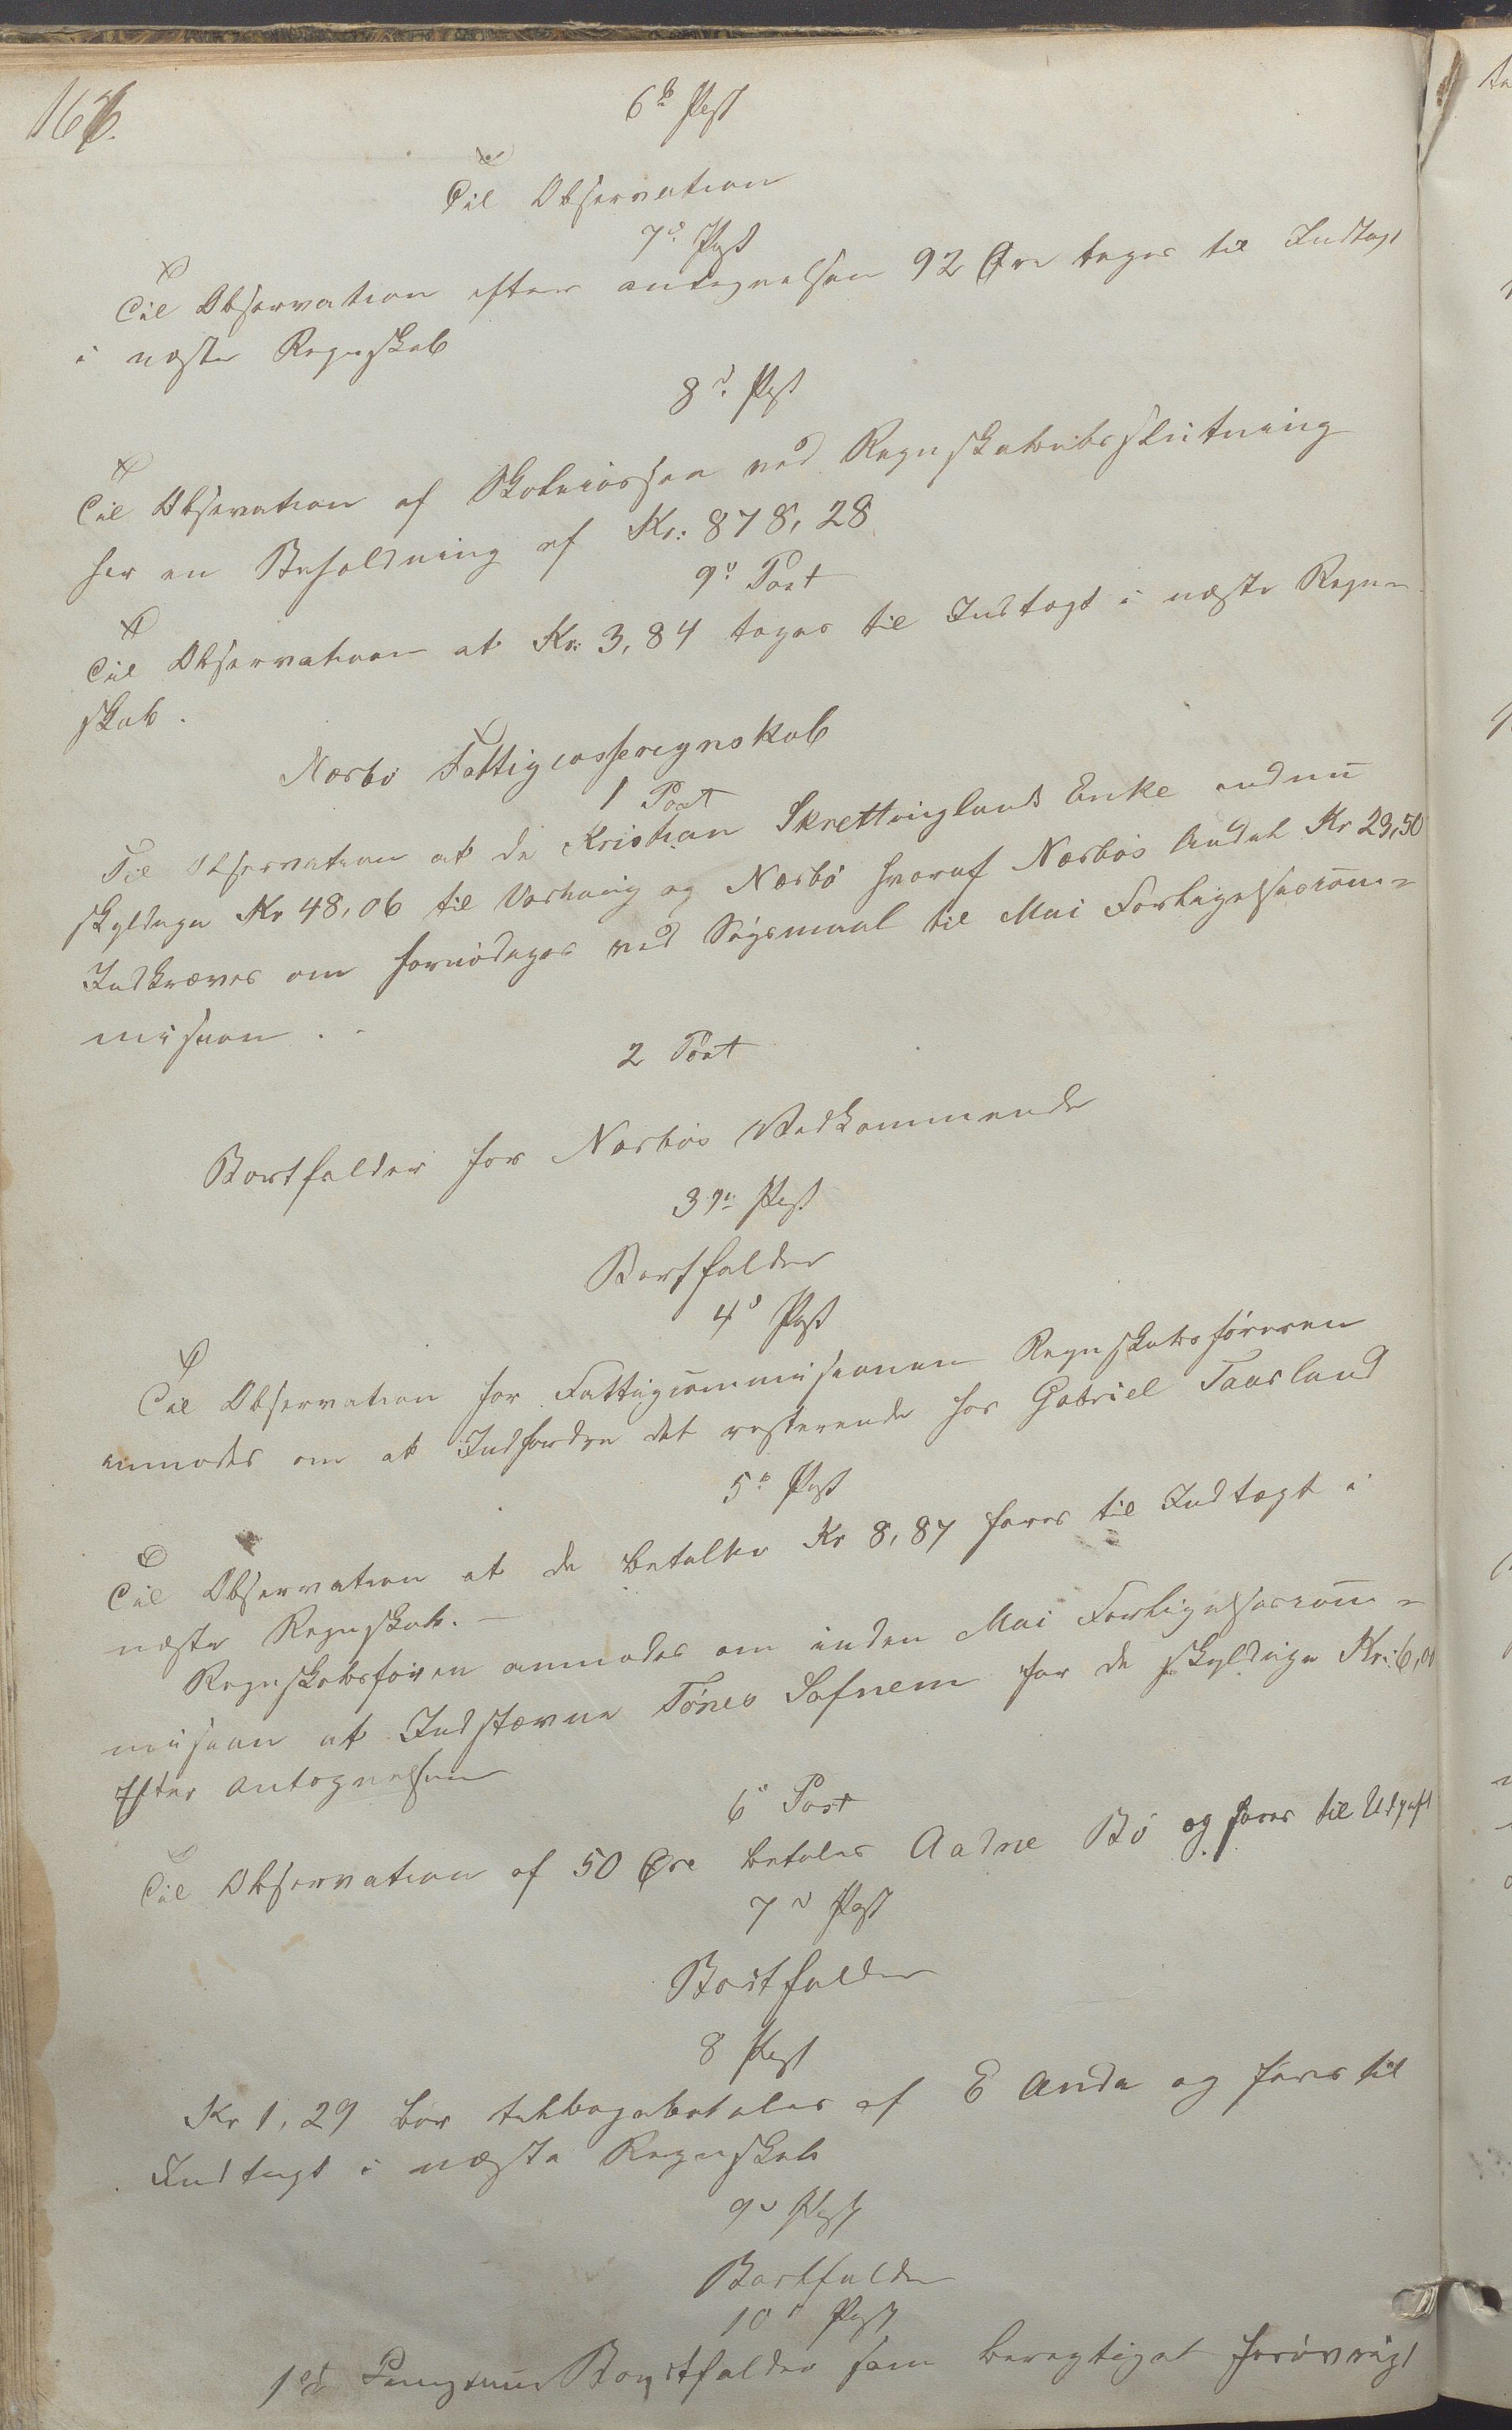 166.
6te Post
Til Observation
7de Post
Til Observation efter antegnelsen 92 Øre tages til Indtægt
i næste Regnskab
8de Post
Til Observation af Skolecassen ved Regnskabets slutning
har en Beholdning af Kr: 878,28
9de Post
Til Observation at Kr: 3,84 tages til Indtægt i næste Regn-
skab.
Nærbø Fattigcasseregnskab
1 Post
Til Observation at de Kristian Skrettinglands Enke endnu
skyldige Kr 48,06 til Varhoug og Nærbø hvoraf Nærbøs Andel Kr 23,50
Indkræves om fornødiges ved Søgsmaal til Mai Forligelsescom-
mission.
2 Post
Bortfalder for Nærbøs Vedkommende
3die Post
Bortfalder
4de Post
Til Observation for Fattigcommissionen Regnskabsføreren
anmodes om at Indfordre det resterende hos Gabriel Taarland
5te Post
Til Observation at de betalte Kr 8,87 føres til Indtægt i
næste Regnskab.
Regnskabsføren anmodes om inden Mai Forligelsescom-
mission at Indstævne Tønes for de skyldige Kr: 6,
Efter antegnelsen
6te Post
Til Observation af 50 Øre betales Aadne Bø og føres til Udgift
7de Post
Bortfalder
8 Post
Kr 1,29 bør tilbagebetales af E Anda og føres til
Indtægt i næste Regnskab
9de Post
Bortfalder
10de Post
1ste Punctum Bortfalder som beregtiget forøvrigt